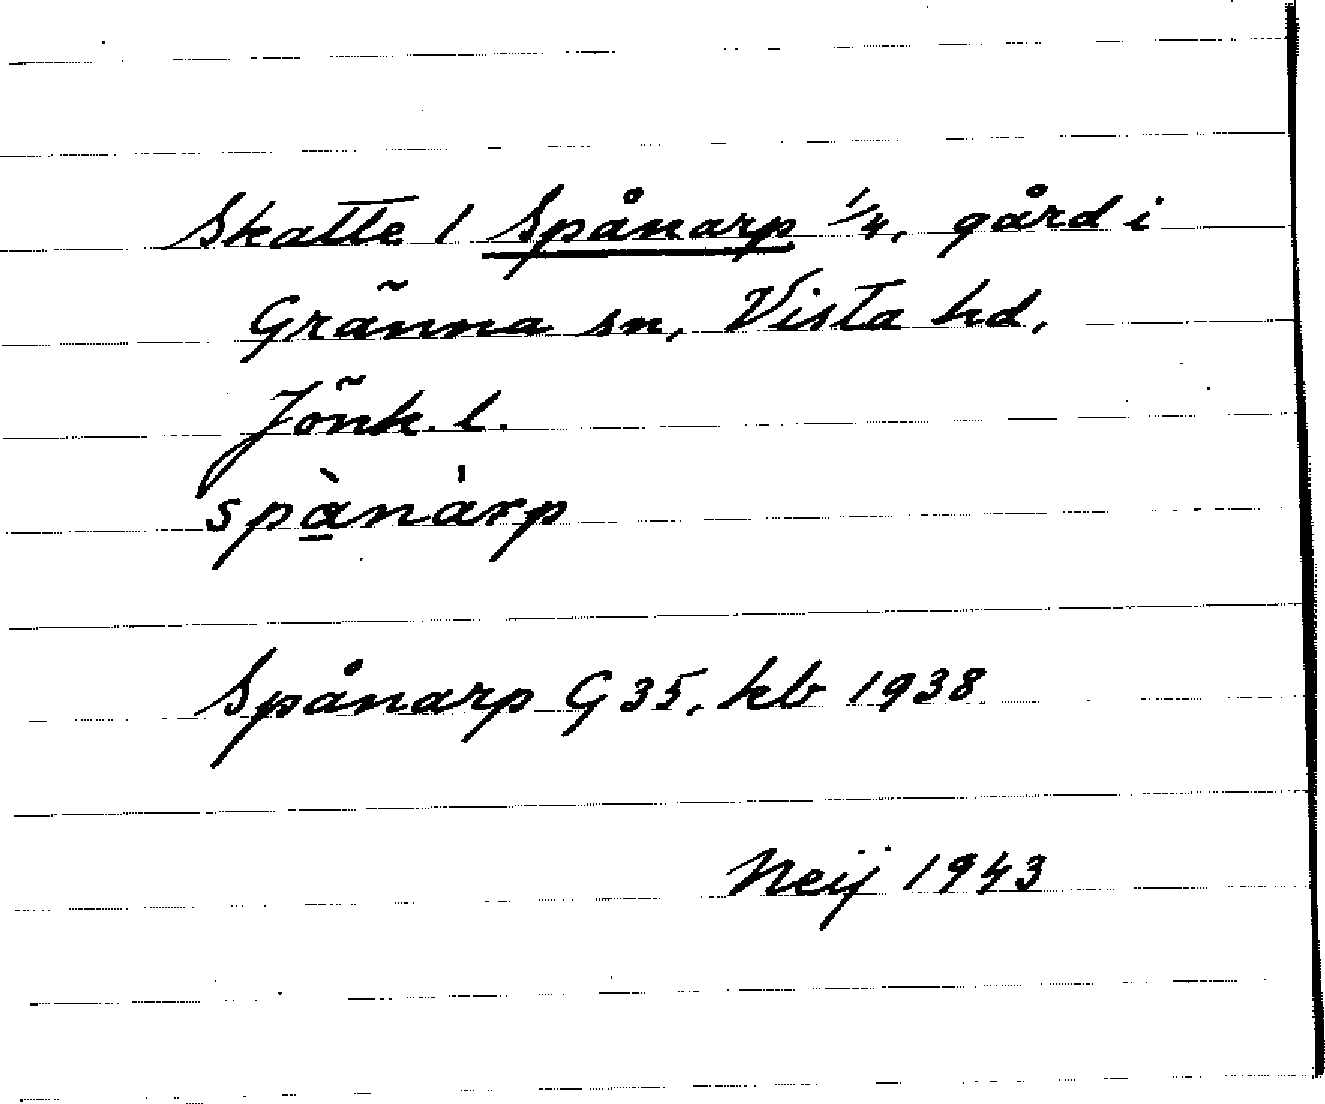 Skatte 1 Spånarp 1/4, gård i
Gränna sn, Vista hd,
Jönk. l.
spànárp
Spånarp G 35, kb 1938
Neij 1943